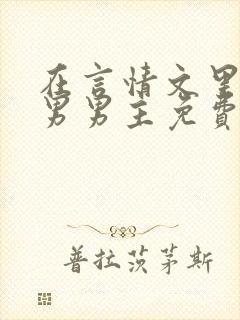 在言情文里
男男主免费
普拉茨茅斯